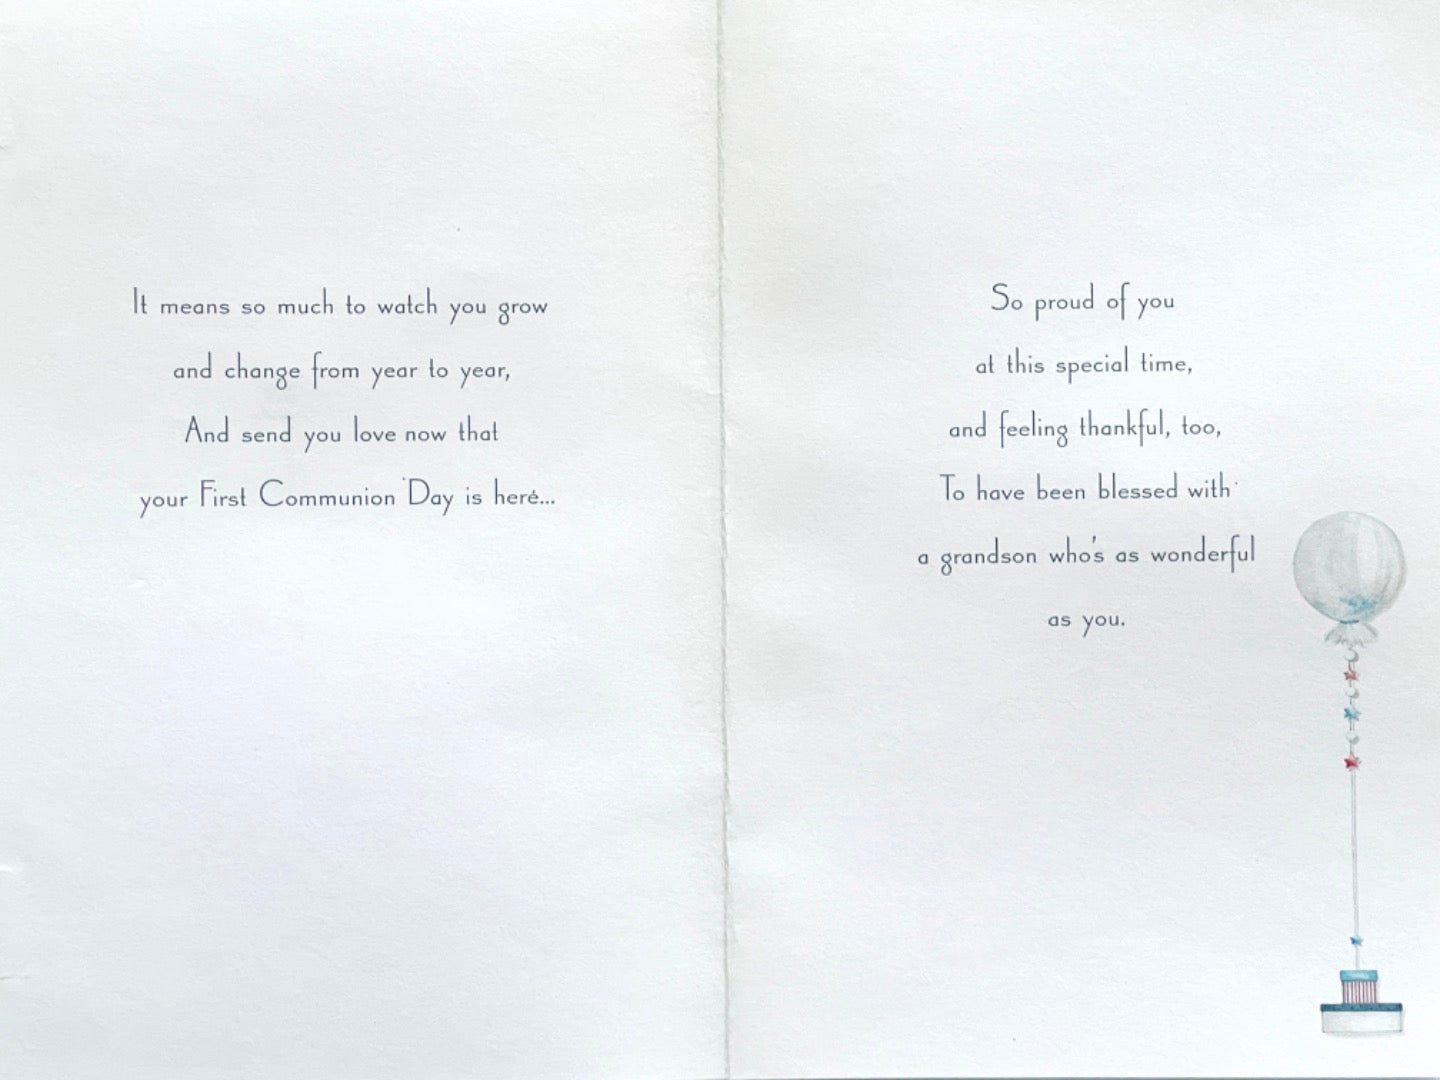 It means so much to watch you grow
and change from year to year,
And send you love now that
your First Communion Day is here...
So proud of you
at this special time,
and feeling thankful, too,
To have been blessed with
a grandson who's as wonderful
as you.